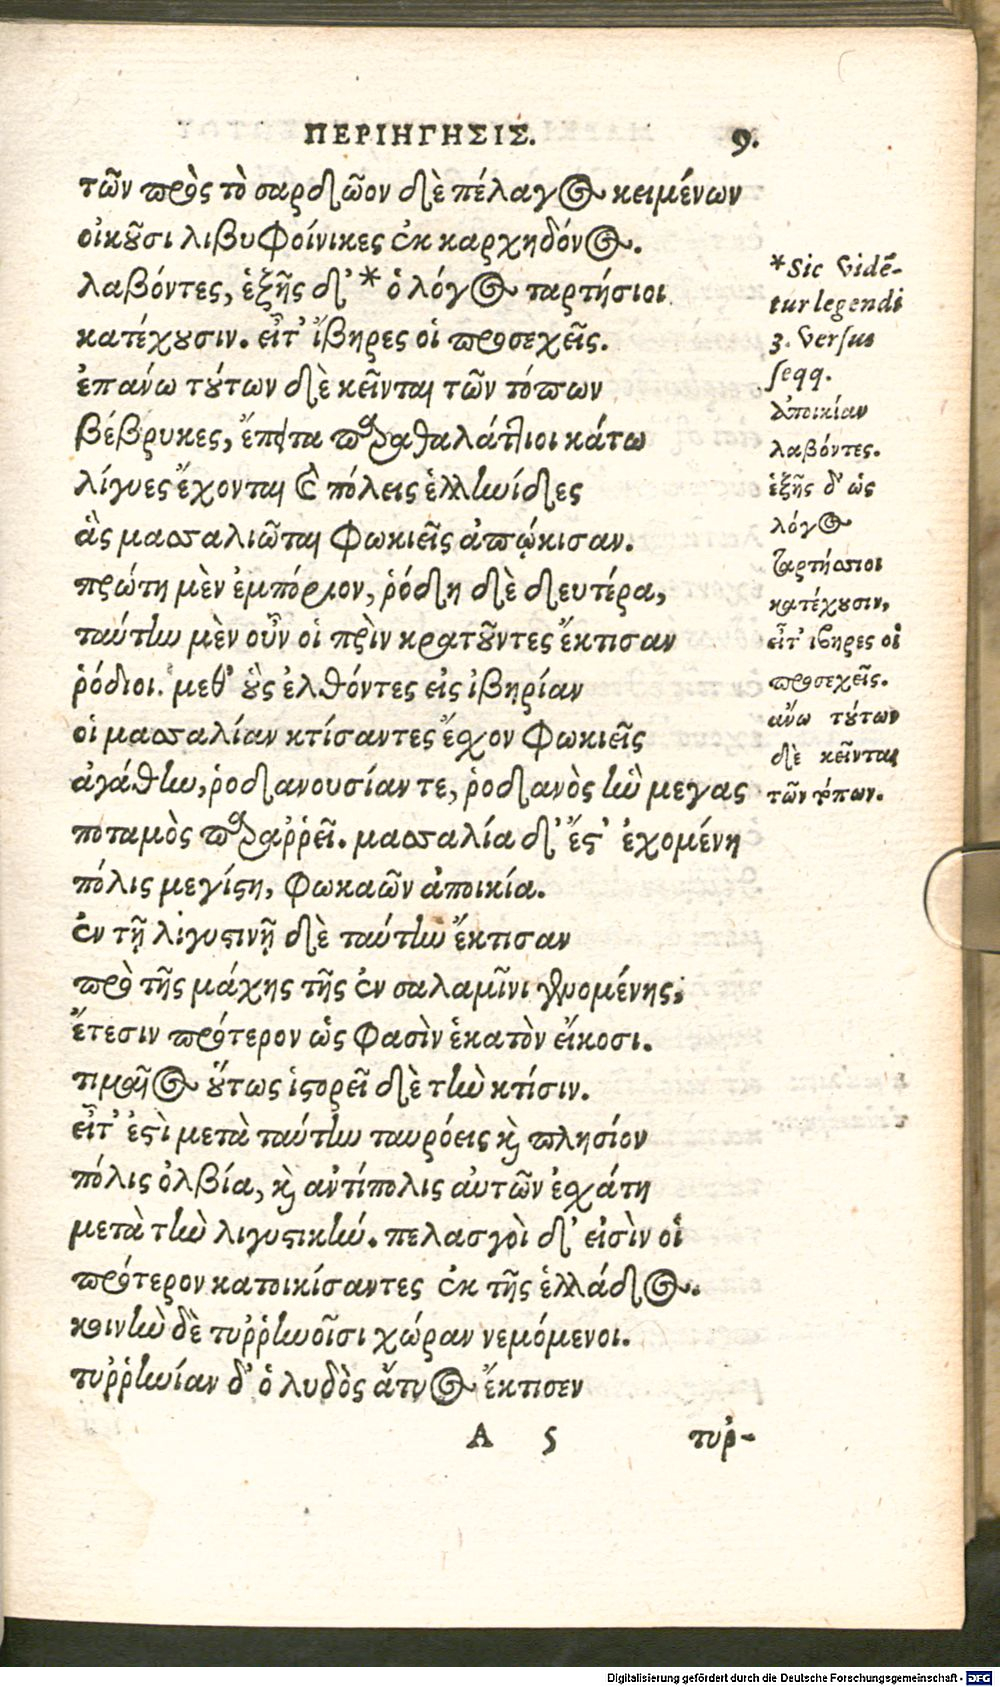 ΠΕΡΙΗΓΗΣΙΣ. 9.
τῶν πρὸς τὸ σαρδῶον δὲ πέλαγος κειμένων
οἰκοῦσι λιβυφοίνικες ἐκ καρχηδόνος.
λαβόντες, ἑξῆς δ' * ὁ λόγος ταρτήσιοι
κατέχουσιν. εἶτ' ἴβηρες οἱ προσεχεῖς.
ἐπανώ τούτων δὲ κεῖνται τῶν τόπων
βέβρυκες, ἔπειτα παραθαλάττιοι κάτω
λίγυες ἔχονται καὶ πόλεις ἑλληνίδες
ἃς μασσαλιῶται φωκιεῖς ἀπῴκισαν.
πρώτη μὲν ἐμπόριον, ῥόδη δὲ δευτέρα,
ταύτην μὲν οὖν οἱ πρὶν κρατοῦντες ἔκτισαν
ῥόδιοι. μεθ' οὓς ἐλθόντες εἰς ἰβηρίαν
οἱ μασσαλίαν κτίσαντες ἔσχον φωκιεῖς
ἀγάθην, ῥοδανουσίαν τε, ῥοδανὸς ἣν μεγας
ποταμὸς παραῤῥεῖ. μασσαλία δ' ἔστ' ἐχομένη
πόλις μεγίστη, φωκαῶν ἀποικία.
ἐν τῇ λιγυστινῇ δὲ ταύτην ἔκτισαν
πρὸ τῆς μάχης τῆς ἐν σαλαμῖνι γενομένης,
ἔτεσιν πρότερον ὡς φασὶν ἑκατὸν εἴκοσι.
τιμαῖος οὕτως ἱστορεῖ δὲ τὴν κτίσιν.
εἶτ' ἐστὶ μετὰ ταύτην ταυρόεις καὶ πλησίον
πόλις ὀλβία, καὶ ἀντίπολις ἀυτῶν ἐσχάτη
μετὰ τὴν λιγυστικήν. πελασγοὶ δ' εἰσὶν οἱ
πρότερον κατοικίσαντες ἐκ τῆς ἑλλάδος.
κοινὴν δὲ τυῤῥηνοῖσι χώραν νεμόμενοι.
τυῤῥηνίαν δ' ὁ λυδὸς ἄτυς ἔκτισεν
A 5 τυῤ-
*Sic vidē-
tur legendi
3. versus
seqq.
ἀποικίαν
λαβόντες.
ἑξῆς δ' ὡς
λόγος
ταρτήσσιοι
κατέχουσιν,
εἶτ' ιβηρες οἱ
προσεχεῖς.
ἄνω τούτων
δὲ κεῖνται
τῶν τόπων.
Digitalisierung gefördert durch die Deutsche Forschungsgemeinschaft - DFG